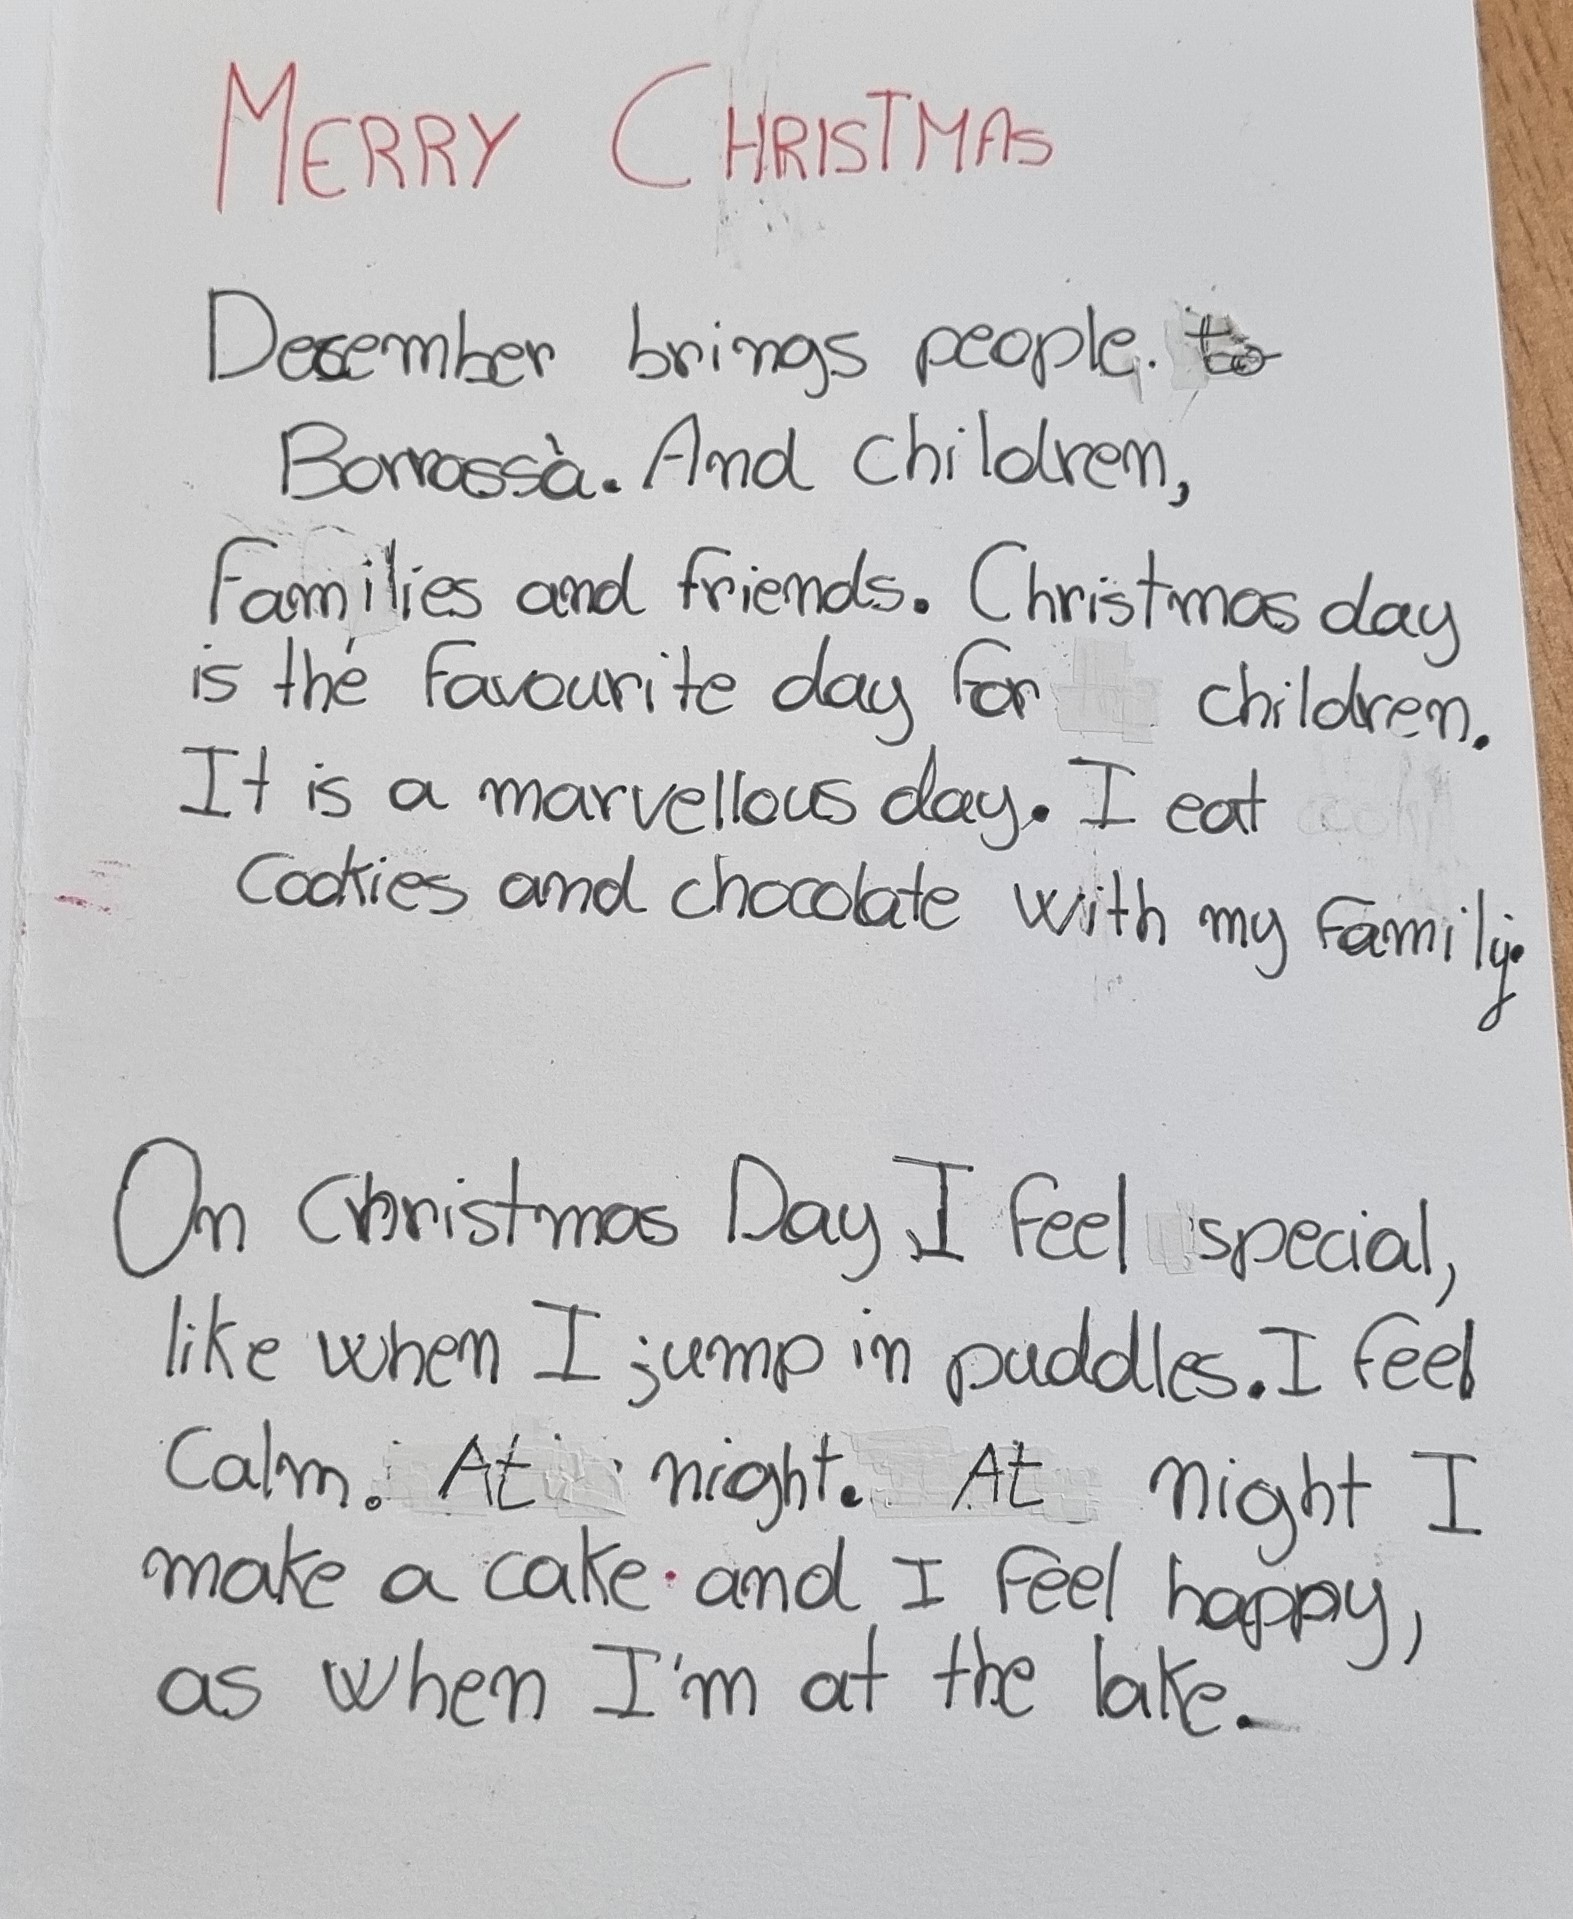 MERRY CHRISTMAS
December brings people. to
Borrassà. And children,
Families and friends. Christmas day
is the favourite day for children.
It is a marvellous day. I eat
Cookies and chocolate with my family.
On Christmas Day I feel special,
like when I jump in puddles. I feel
Calm. At night. At night I
make a cake. and I feel happy,
as when I'm at the lake.